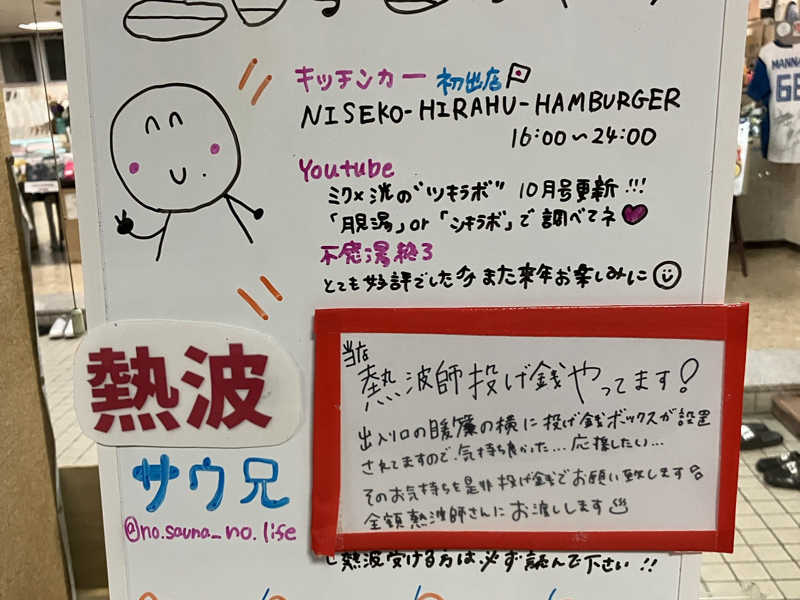 キッチンカー 初出店
NISEKO-HIRAHU-HAMBURGER
16:00〜24:00
Youtube
ミクメ洸の"ツキラボ" 10月号更新!!!
「月見湯」or「ツキラボ」で調べてネ
不感湯終了
とても好評でした また来年お楽しみに
熱波
サウ兄
@no.sauna_no.life
当店
熱波師投げ銭やってます!
出入り口の暖簾の横に投げ銭ボックスが設置
されてますので、気持ち良かった…応援したい…
そのお気持ちを是非投げ銭でお願い致します
全額熱波師さんにお渡しします
熱波受ける方は必ず読んで下さい!!
MANNA
66